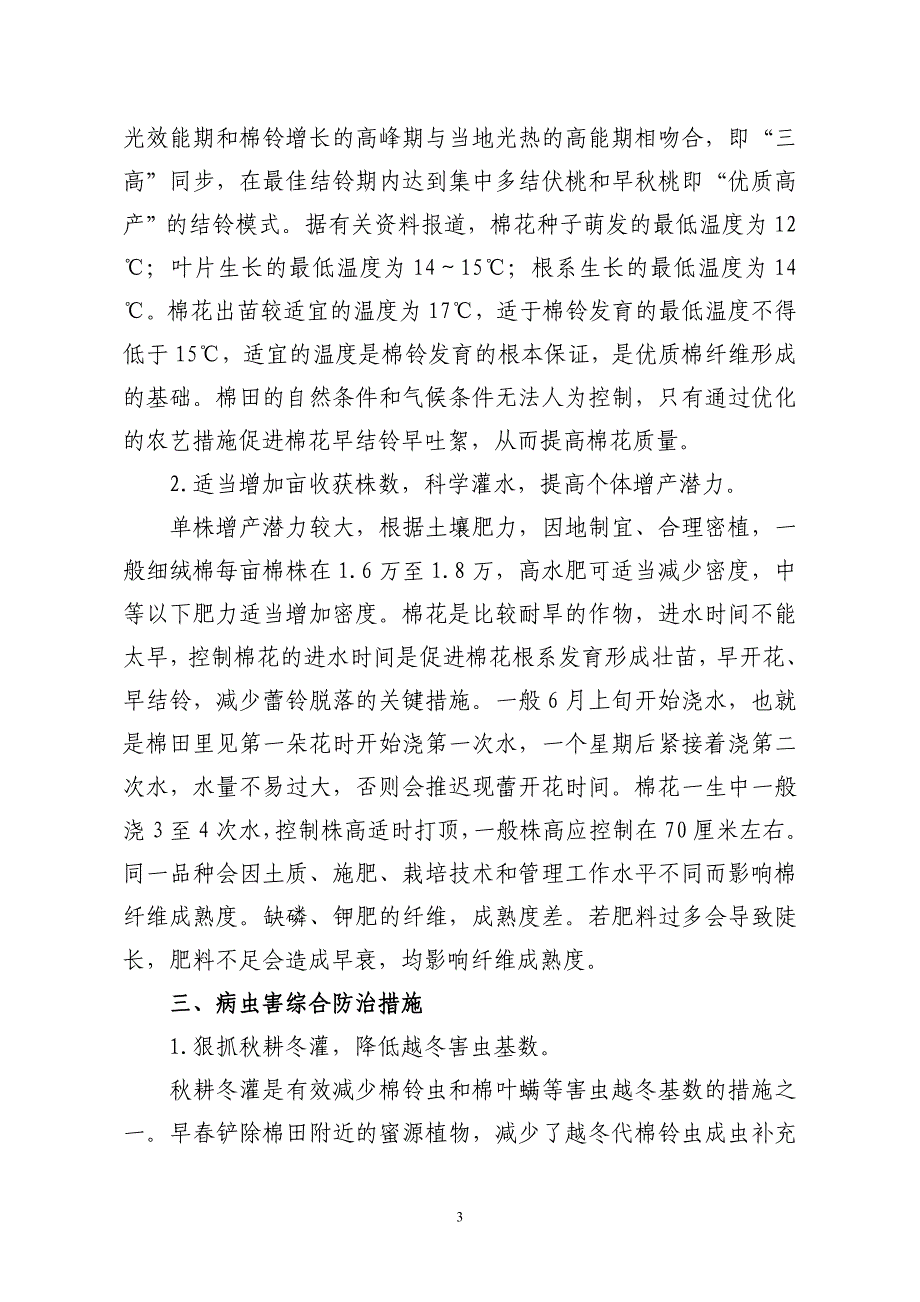 光效能期和棉铃增长的高峰期与当地光热的高能期相吻合，即“三
高”同步，在最佳结铃期内达到集中多结伏桃和早秋桃即“优质高
产”的结铃模式。据有关资料报道，棉花种子萌发的最低温度为 12
℃；叶片生长的最低温度为 14～15℃；根系生长的最低温度为 14
℃。棉花出苗较适宜的温度为 17℃，适于棉铃发育的最低温度不得
低于 15℃，适宜的温度是棉铃发育的根本保证，是优质棉纤维形成
的基础。棉田的自然条件和气候条件无法人为控制，只有通过优化
的农艺措施促进棉花早结铃早吐絮，从而提高棉花质量。
2.适当增加亩收获株数，科学灌水，提高个体增产潜力。
单株增产潜力较大，根据土壤肥力，因地制宜、合理密植，一
般细绒棉每亩棉株在 1.6 万至 1.8 万，高水肥可适当减少密度，中
等以下肥力适当增加密度。棉花是比较耐旱的作物，进水时间不能
太早，控制棉花的进水时间是促进棉花根系发育形成壮苗，早开花、
早结铃，减少蕾铃脱落的关键措施。一般 6 月上旬开始浇水，也就
是棉田里见第一朵花时开始浇第一次水，一个星期后紧接着浇第二
次水，水量不易过大，否则会推迟现蕾开花时间。棉花一生中一般
浇 3 至 4 次水，控制株高适时打顶，一般株高应控制在 70 厘米左右。
同一品种会因土质、施肥、栽培技术和管理工作水平不同而影响棉
纤维成熟度。缺磷、钾肥的纤维，成熟度差。若肥料过多会导致陡
长，肥料不足会造成早衰，均影响纤维成熟度。
三、病虫害综合防治措施
1.狠抓秋耕冬灌，降低越冬害虫基数。
秋耕冬灌是有效减少棉铃虫和棉叶螨等害虫越冬基数的措施之
一。早春铲除棉田附近的蜜源植物，减少了越冬代棉铃虫成虫补充
3